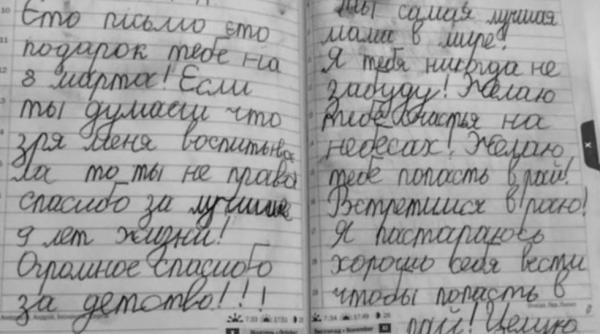 Ето письмо ето
подарок тебе на
8 марта! Если
ты думаеш что
зря меня воспитыва
ла то ты не права
спасибо за лучшие
9 лет жизни!
Огромное спасибо
за детство!!!
7:33 17:51
Ты самая лучшая
мама в мире!
Я тебя никогда не
забуду! Желаю
тебе счастья на
небесах! Желаю
тебе попасть в рай!
Встретимся в раю!
Я пастараюсь
хорошо себя вести
чтобы попасть в
рай! Целую
7:34 17:49